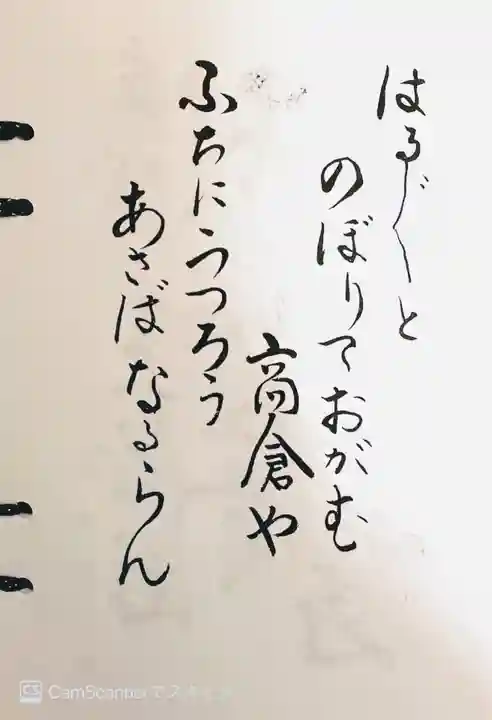 はるゞ〳〵と
のぼりておがむ
高倉や
ふちにうつろう
あさばなるらん
CS CamScannerでスキャン